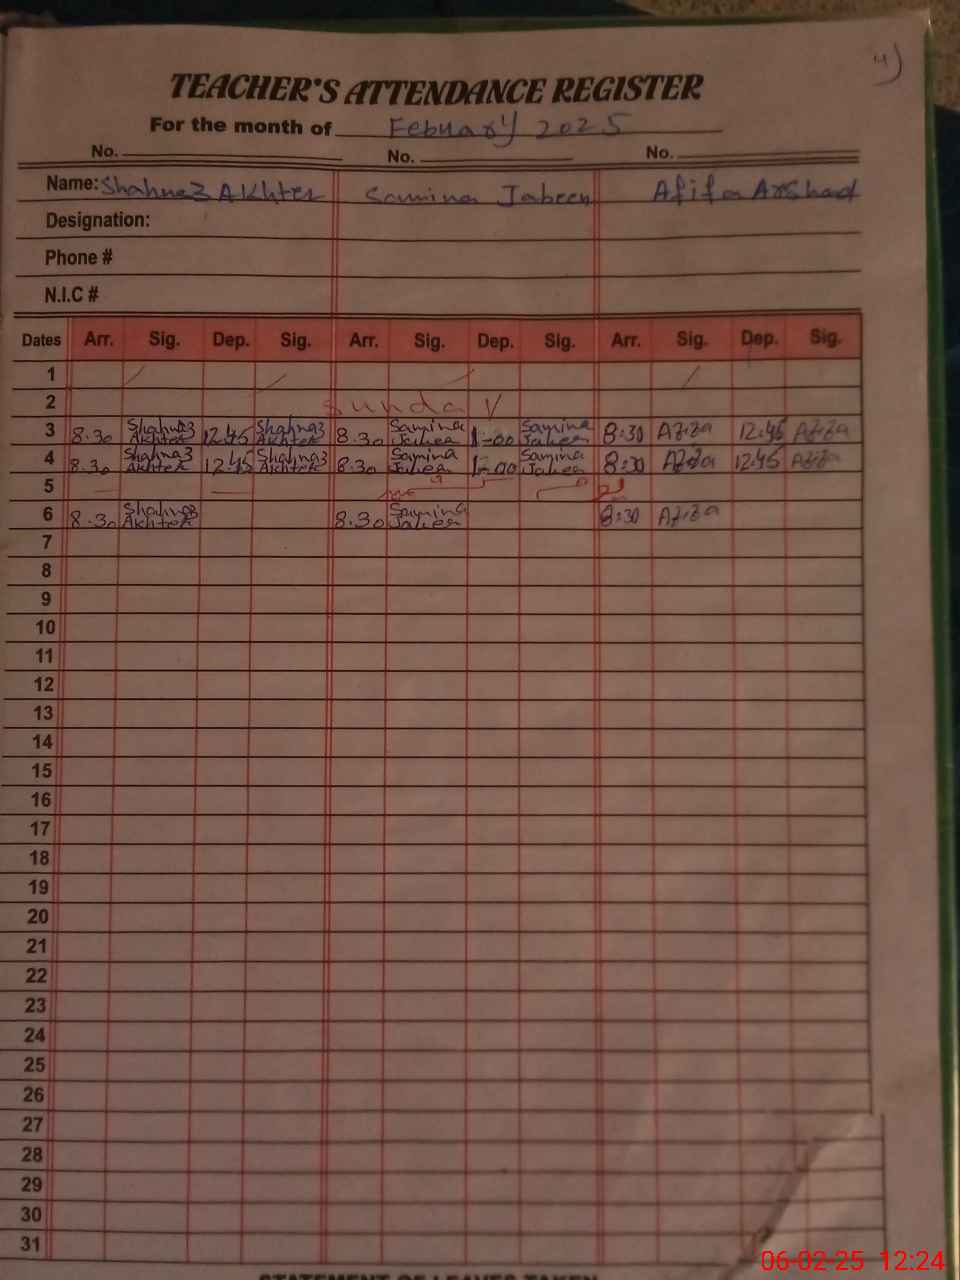 4)
TEACHER'S ATTENDANCE REGISTER
For the month of Febuary 2025
No. No. No.
Name: Shahnaz Akhter Samina Jabeen Afifa Arshad
Designation:
Phone #
N.I.C #
Dates Arr. Sig. Dep. Sig. Arr. Sig. Dep. Sig. Arr. Sig. Dep. Sig.
1
2 Sunday
3 8.30 Shahnaz Akhter 12.45 Shahnaz Akhter 8.30 Samina Jabeen 1-00 Samina Jabeen 8:30 Afifa 12:45 Afifa
4 8.30 Shahnaz Akhter 12.45 Shahnaz Akhter 8.30 Samina Jabeen 1-00 Samina Jabeen 8:30 Afifa 12:45 Afifa
5
6 8.30 Shahnaz Akhter 8.30 Samina Jabeen 8:30 Afifa
7
8
9
10
11
12
13
14
15
16
17
18
19
20
21
22
23
24
25
26
27
28
29
30
31
STATEMENT OF LEAVES TAKEN
06-02-25 12:24